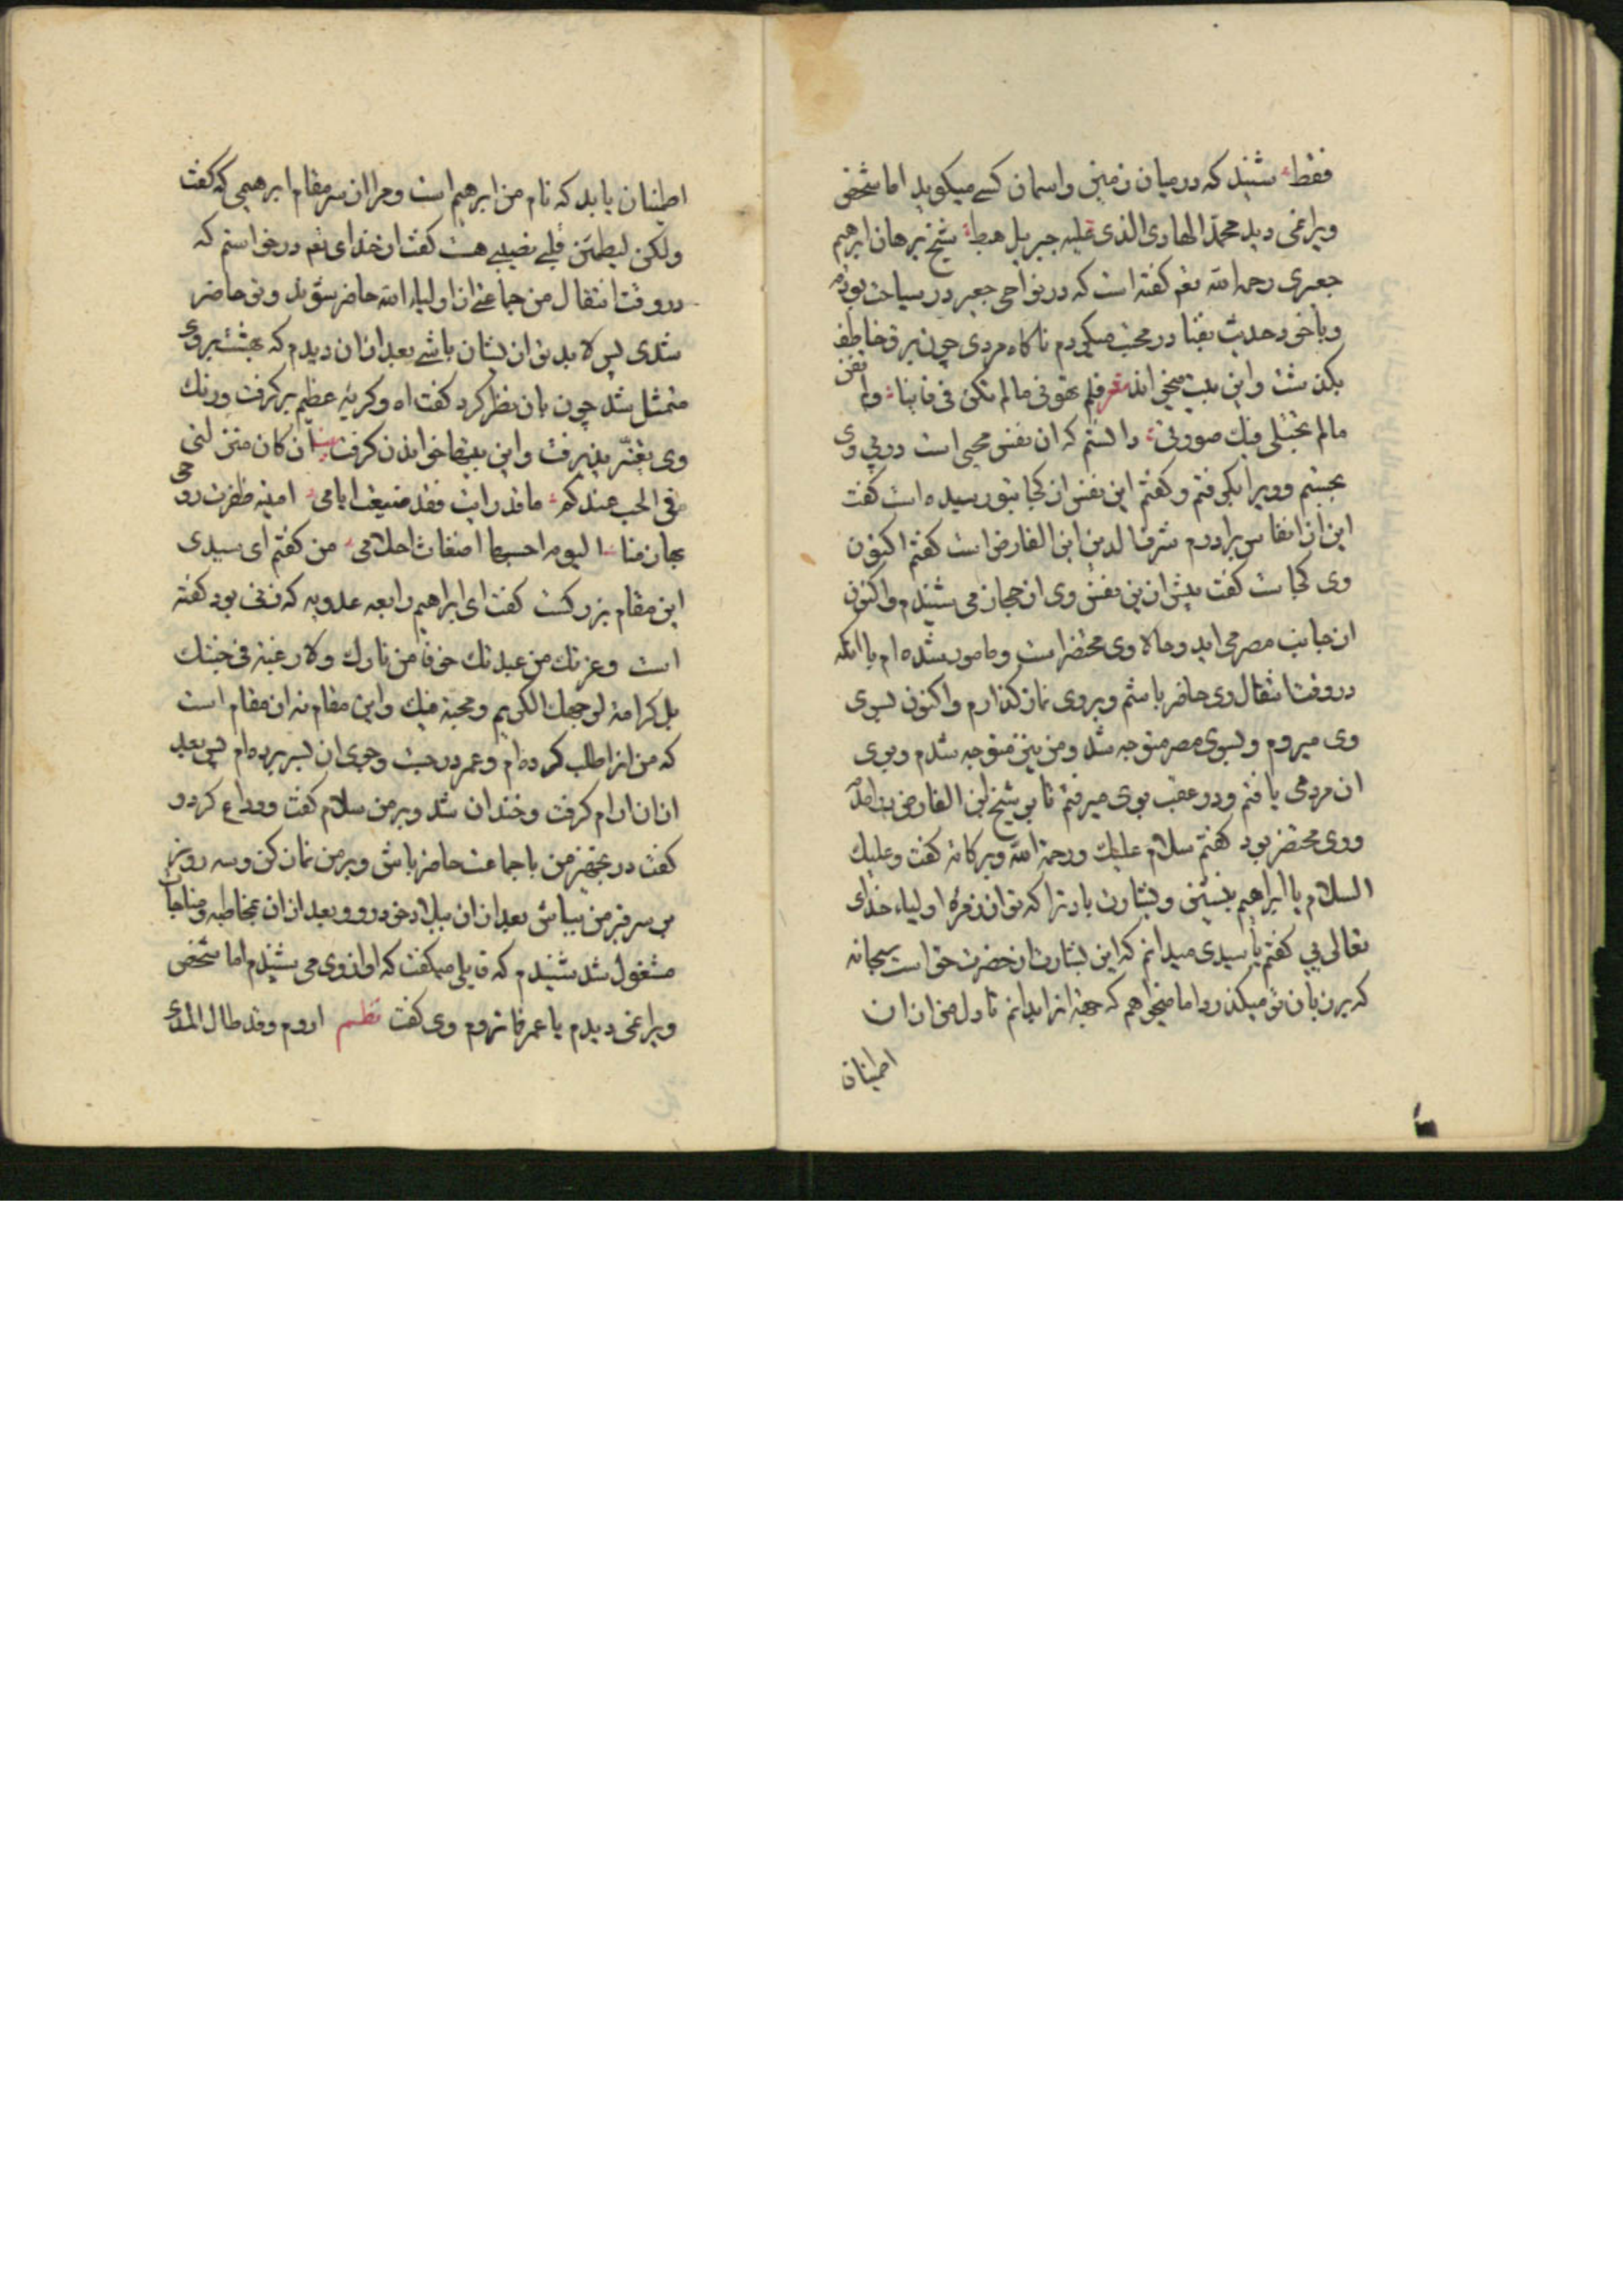 فقط شنید که در میان زمین و اسمان کسے میکوید اما شخص
ویرا نمی دید محمد الهادی الذی علیه جبریل هبط شیخ برهان ابرهیم
جعبری رحمه الله تعم کفته است که در نواحی جعبر در سیاحت بودم
و با خود حدیث بفنا در محبت میکردم ناکاه مردی چون برق خاطف
بکذشت و این بیت میخواند شعر فلم تهونی مالم تکن فی فانیا ولم تفن
مالم تجتلی فیك صورتی دانستم که ان نفس محبی است در پی وی
بجستم و ویرا بکرفتم و کفتم این نفس از کجا بتو رسیده است کفت
این از انفاس برادرم شرف الدین ابن الفارض است کفتم اکنون
وی کجاست کفت پیش ازین نفس وی از حجاز می شنیدم و اکنون
از جانب مصر می اید و حالا وی محتضر است و مامور شده ام بانکه
در وقت انتقال وی حاضر باشم و بر وی نماز کذارم و اکنون بسوی
وی میروم و بسوی مصر متوجه شد و من نیز متوجه شدم و بوی
ان مرد می یافتم و در عقب بوی میرفتم تا بر شیخ ابن الفارض در امدم
و وی محتضر بود کفتم سلام علیك و رحمة الله و برکاته کفت و علیك
السلام یا ابراهیم بنشین و بشارت باد ترا که تو از زمره اولیاء خدای
تعالی یی کفتم یا سیدی میدانم که این بشارت از حضرت حق است سبحانه
که بر زبان تو میکذرد اما میخواهم که جهت انرا بدانم تا دل من از ان
اطمینان
اطمینان یابد که نام من ابرهیم است و مرا از سر مقام ابرهیمی که کفت
ولکن لیطمئن قلبے نصیبے هست کفت از خدای تعم درخواستم که
در وقت انتقال من جماعتی از اولیاء الله حاضر شوند و تو حاضر
شدی پس لابد تو از ایشان باشے بعد از ان دیدم که بهشت بر وی
متمثل شد چون بان نظر کرد کفت اه و کریه عظیم بر کرفت و رنك
وی تغیر پذیرفت و این بیتها خواندن کرفت ان کان منزلتی
فی الحب عندکم ما قد رایت فقد ضیعت ایامی امنیه ظفرت روحی
بها زمنا الیوم احسبها اضغاث احلامی من کفتم ای سیدی
این مقام بزرکست کفت ای ابراهیم رابعه عدویه که زنی بود کفته
است وعزتك من عبدتك خوفا من نارك ولا رغبة فی جنتك
بل کرامة لوجهك الکریم ومحبة فیك و این مقام نه ان مقام است
که من انرا طلب کرده ام و عمر در جست وجوی ان بسر برده ام پس بعد
از ان ارام کرفت و خندان شد و بر من سلام کفت و وداع کرد و
کفت در تجهیز من با جماعت حاضر باش و بر من نماز کن و سه روز
بر سر قبر من بباش بعد از ان ببلاد خود رو و بعد از ان بمخاطبه و مناجات
مشغول شد شنیدم که قایلی میکفت که اواز وی می شنیدم اما شخص
ویرا نمی دیدم یا عمر فما تروم وی کفت نظم اروم وقد طال المدی